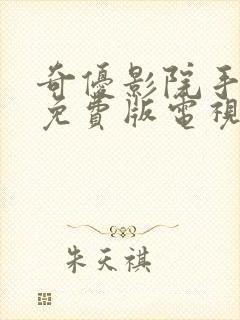 奇優影院手
免費版電視
朱天祺